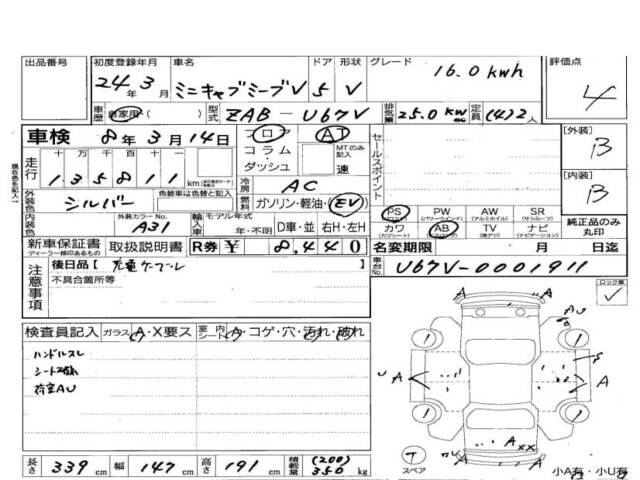 出品番号
初度登録年月
24年3月
車名
ミニキャブミーブV
ドア 形状
5 V
グレード
16.0 kwh
評価点
4
車歴 自家用・( )
型式 ZAB - U67V
排気量 25.0 kw
定員 (4)2人
車検 8年3月14日
フロア
コラム
ダッシュ
AT
MTのみ記入
速
セールスポイント
[外装]
B
[内装]
B
走行
十 万 千 百 十 一
135811 km
冷房 AC
外装色 シルバー
色替車は色替と記入
燃料 ガソリン・軽油・EV
内装色
外装カラーNo.
A31
輸入車
モデル年式
年・不明
D車・並 右H・左H
PS PW AW SR
(パワステ) (パワーウインドウ) (アルミホイル) (サンルーフ)
カワ AB TV ナビ
(カワシート) (エアバッグ) (ナビゲーション)
純正品のみ丸印
新車保証書
ディーラー捺印あるもの
取扱説明書
R券 ¥ 8,440
名変期限 月 日迄
車台No. U67V-0001911
注意事項
後日品【 充電ケーブル
不具合箇所等
ロック車
✓
検査員記入
ガラス A・X要ス
室内シート A・コゲ・穴・汚れ・破れ
ハンドルスレ
シート汚れ
荷室AU
A
AU
U A
A
A xx
T
スペア
小A有・小U有
長さ 339 cm
幅 147 cm
高さ 191 cm
積載量 (200) 350 kg